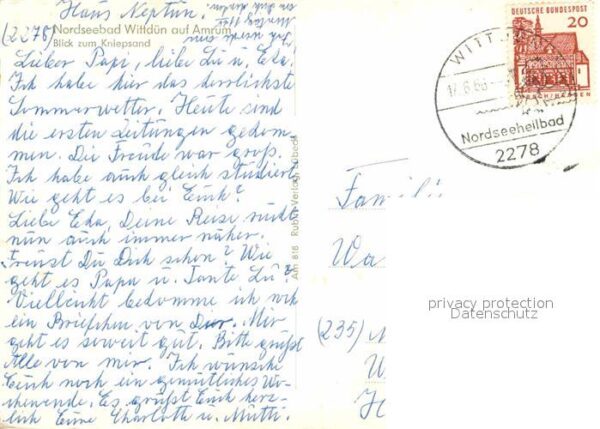 Haus Neptun.
(2278)
Nordseebad Wittdün auf Amrum
Blick zum Kniepsand
Lieber Papi, liebe Lu u, Eda!
Ich habe hier das herrlichste
Sommerwetter. Heute sind
die ersten Zeitungen gekom-
men. Die Freude war groß.
Ich habe auch gleich studiert.
Wie geht es bei Euch?
Liebe Eda, Deine Reise rückt
nun auch immer näher.
Freust Du Dich schon? Wie
geht es Papa u. Tante Lu?
Vielleicht bekomme ich noch
ein Briefchen von Dir. Mir
geht es soweit gut. Bitte grüßt
Alle von mir. Ich wünsche
Euch noch ein gemütliches Wo-
chenende. Es grüßt Euch herz-
lich Eure Charlotte u. Mutti.
Am 818 Rubin-Verlag Lübeck
DEUTSCHE BUNDESPOST
20
LORSCH/HESSEN
WITTDÜN
17.6.66
Nordseeheilbad
2278
Famili
Wa
privacy protection
Datenschutz
(235)
W